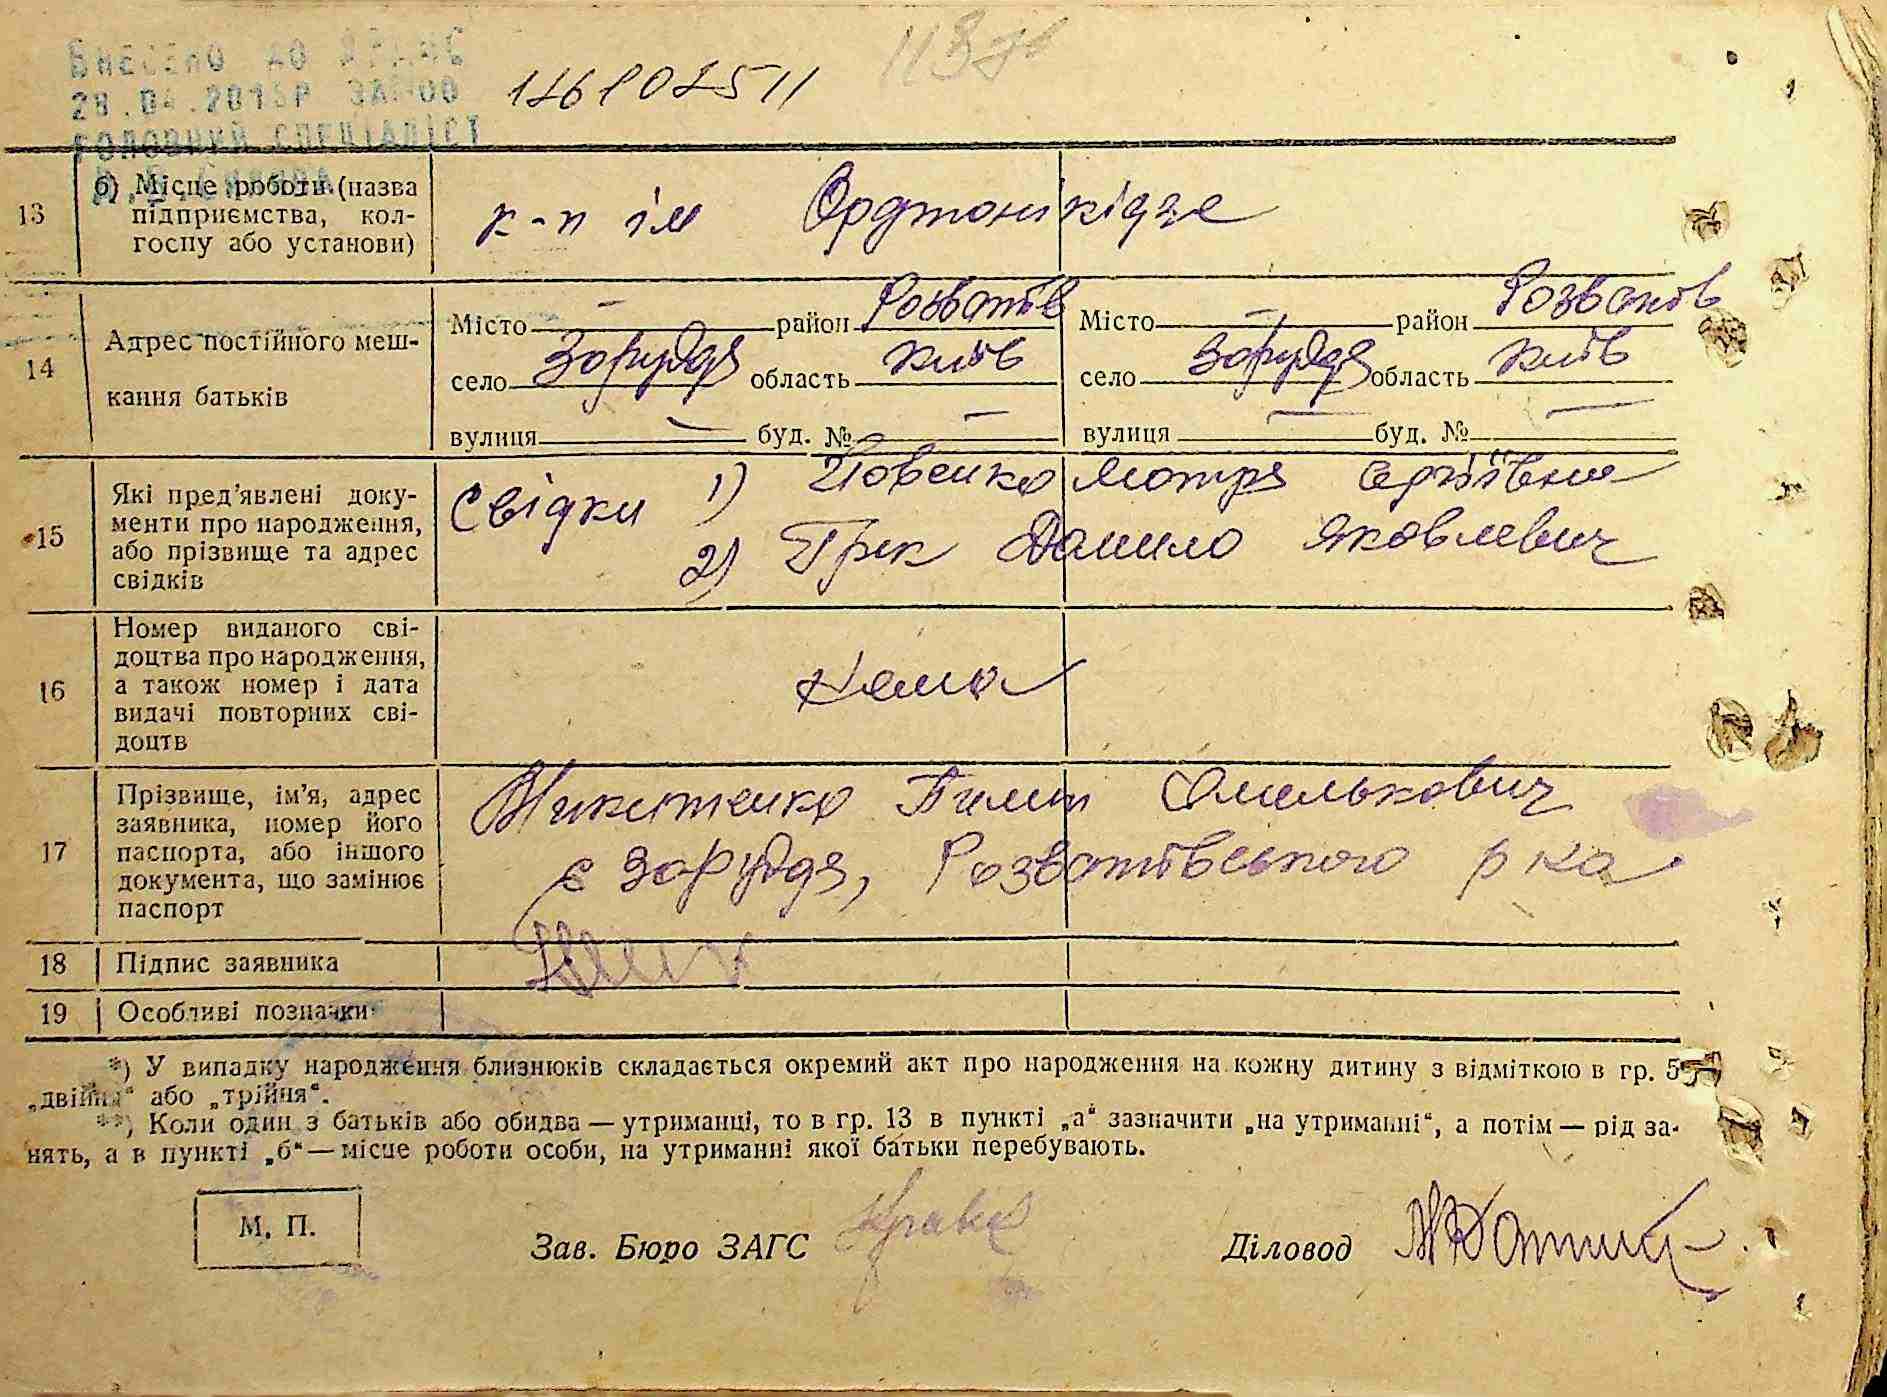 ВНЕСЕНО ДО
ГОЛОВНИЙ СПЕЦІАЛІСТ
13
б) Місце роботи (назва
підприємства, кол-
госпу або установи)
к-п ім Орджонікідзе
14
Адрес постійного меш-
кання батьків
Місто — район Розватів
село Зоруддя область Київ
вулиця — буд. № —
Місто — район Розватів
село Зоруддя область Київ
вулиця — буд. № —
15
Які пред’явлені доку-
менти про народження,
або прізвище та адрес
свідків
Свідки 1) Йовенко Мотря Сергіївна
2) Грек Данило Яковлевич
16
Номер виданого сві-
доцтва про народження,
а також номер і дата
видачі повторних сві-
доцтв
Нема
17
Прізвище, ім’я, адрес
заявника, номер його
паспорта, або іншого
документа, що замінює
паспорт
Микитенко Пилип Омелькович
с Зоруддя, Розватівського р ка
18
Підпис заявника
19
Особливі позначки
*) У випадку народження близнюків складається окремий акт про народження на кожну дитину з відміткою в гр. 5—
„двійня“ або „трійня“.
**) Коли один з батьків або обидва — утриманці, то в гр. 13 в пункті „а“ зазначити „на утриманні“, а потім — рід за-
нять, а в пункті „б“ — місце роботи особи, на утриманні якої батьки перебувають.
М. П.
Зав. Бюро ЗАГС
Діловод